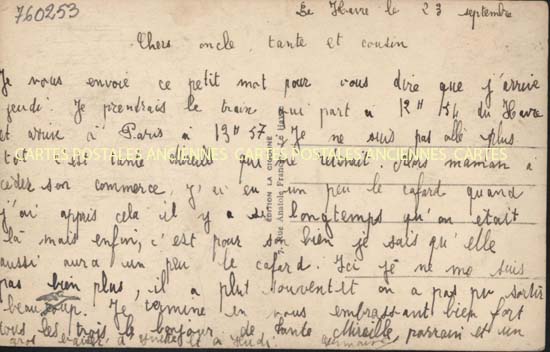 760253
Le Havre le 23 septembre
Chers oncle, tante et cousin
Je vous envoie ce petit mot pour vous dire que j'arrive
jeudi. Je prendrais le train qui part à 12H 54 du Havre
et arrive à Paris à 19H 57. Je ne suis pas allé plus
CARTES POSTALES ANCIENNES CARTES POSTALES ANCIENNES CARTES
tôt c'est tante Mireille qui me retenait. Alors maman a
céder son commerce, j'ai eu un peu le cafard quand
j'ai appris cela il y a si longtemps qu'on était
là mais enfin, c'est pour son bien je sais qu'elle
aussi aura un peu le cafard. Ici je ne me suis
pas bien plus, il a plut souvent et on a pas pu sortir
beaucoup. Je termine en vous embrassant bien fort
tous les trois le bonjour de tante Mireille, parrain et un
gros à jeudi. Germaine
EDITION LA CIGOGNE
7, Rue Anatole France, Le Havre